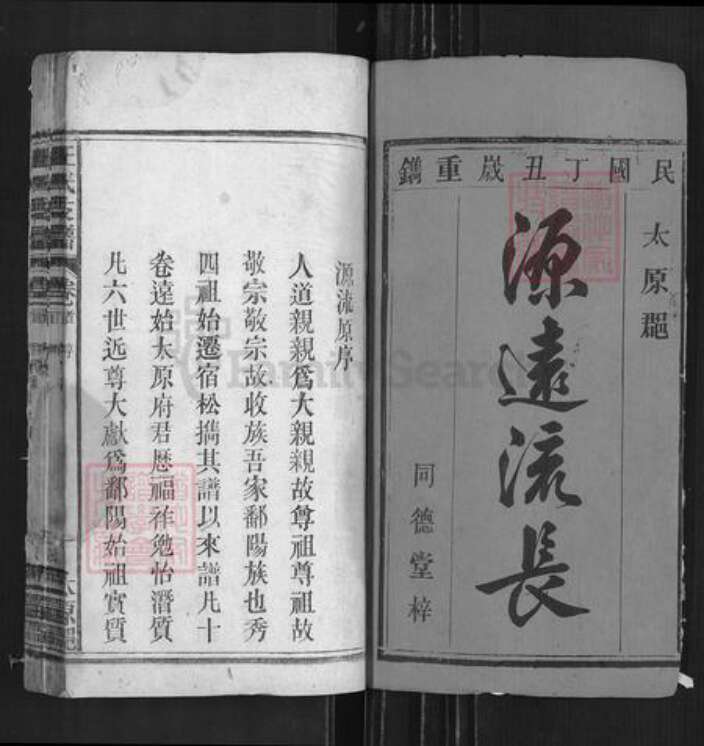 民國丁丑歲重鐫
太原郡
源遠流長
同德堂梓
源流原序
人道親親爲大親親故尊祖尊祖故
敬宗敬宗故收族吾家鄱陽族也秀
四祖始遷宿松攜其譜以來譜凡十
卷遠始太原府君歷福祥勉怡潛質
凡六世近尊大獻爲鄱陽始祖實質
王氏支譜
卷首
太原郡
FamilySearch